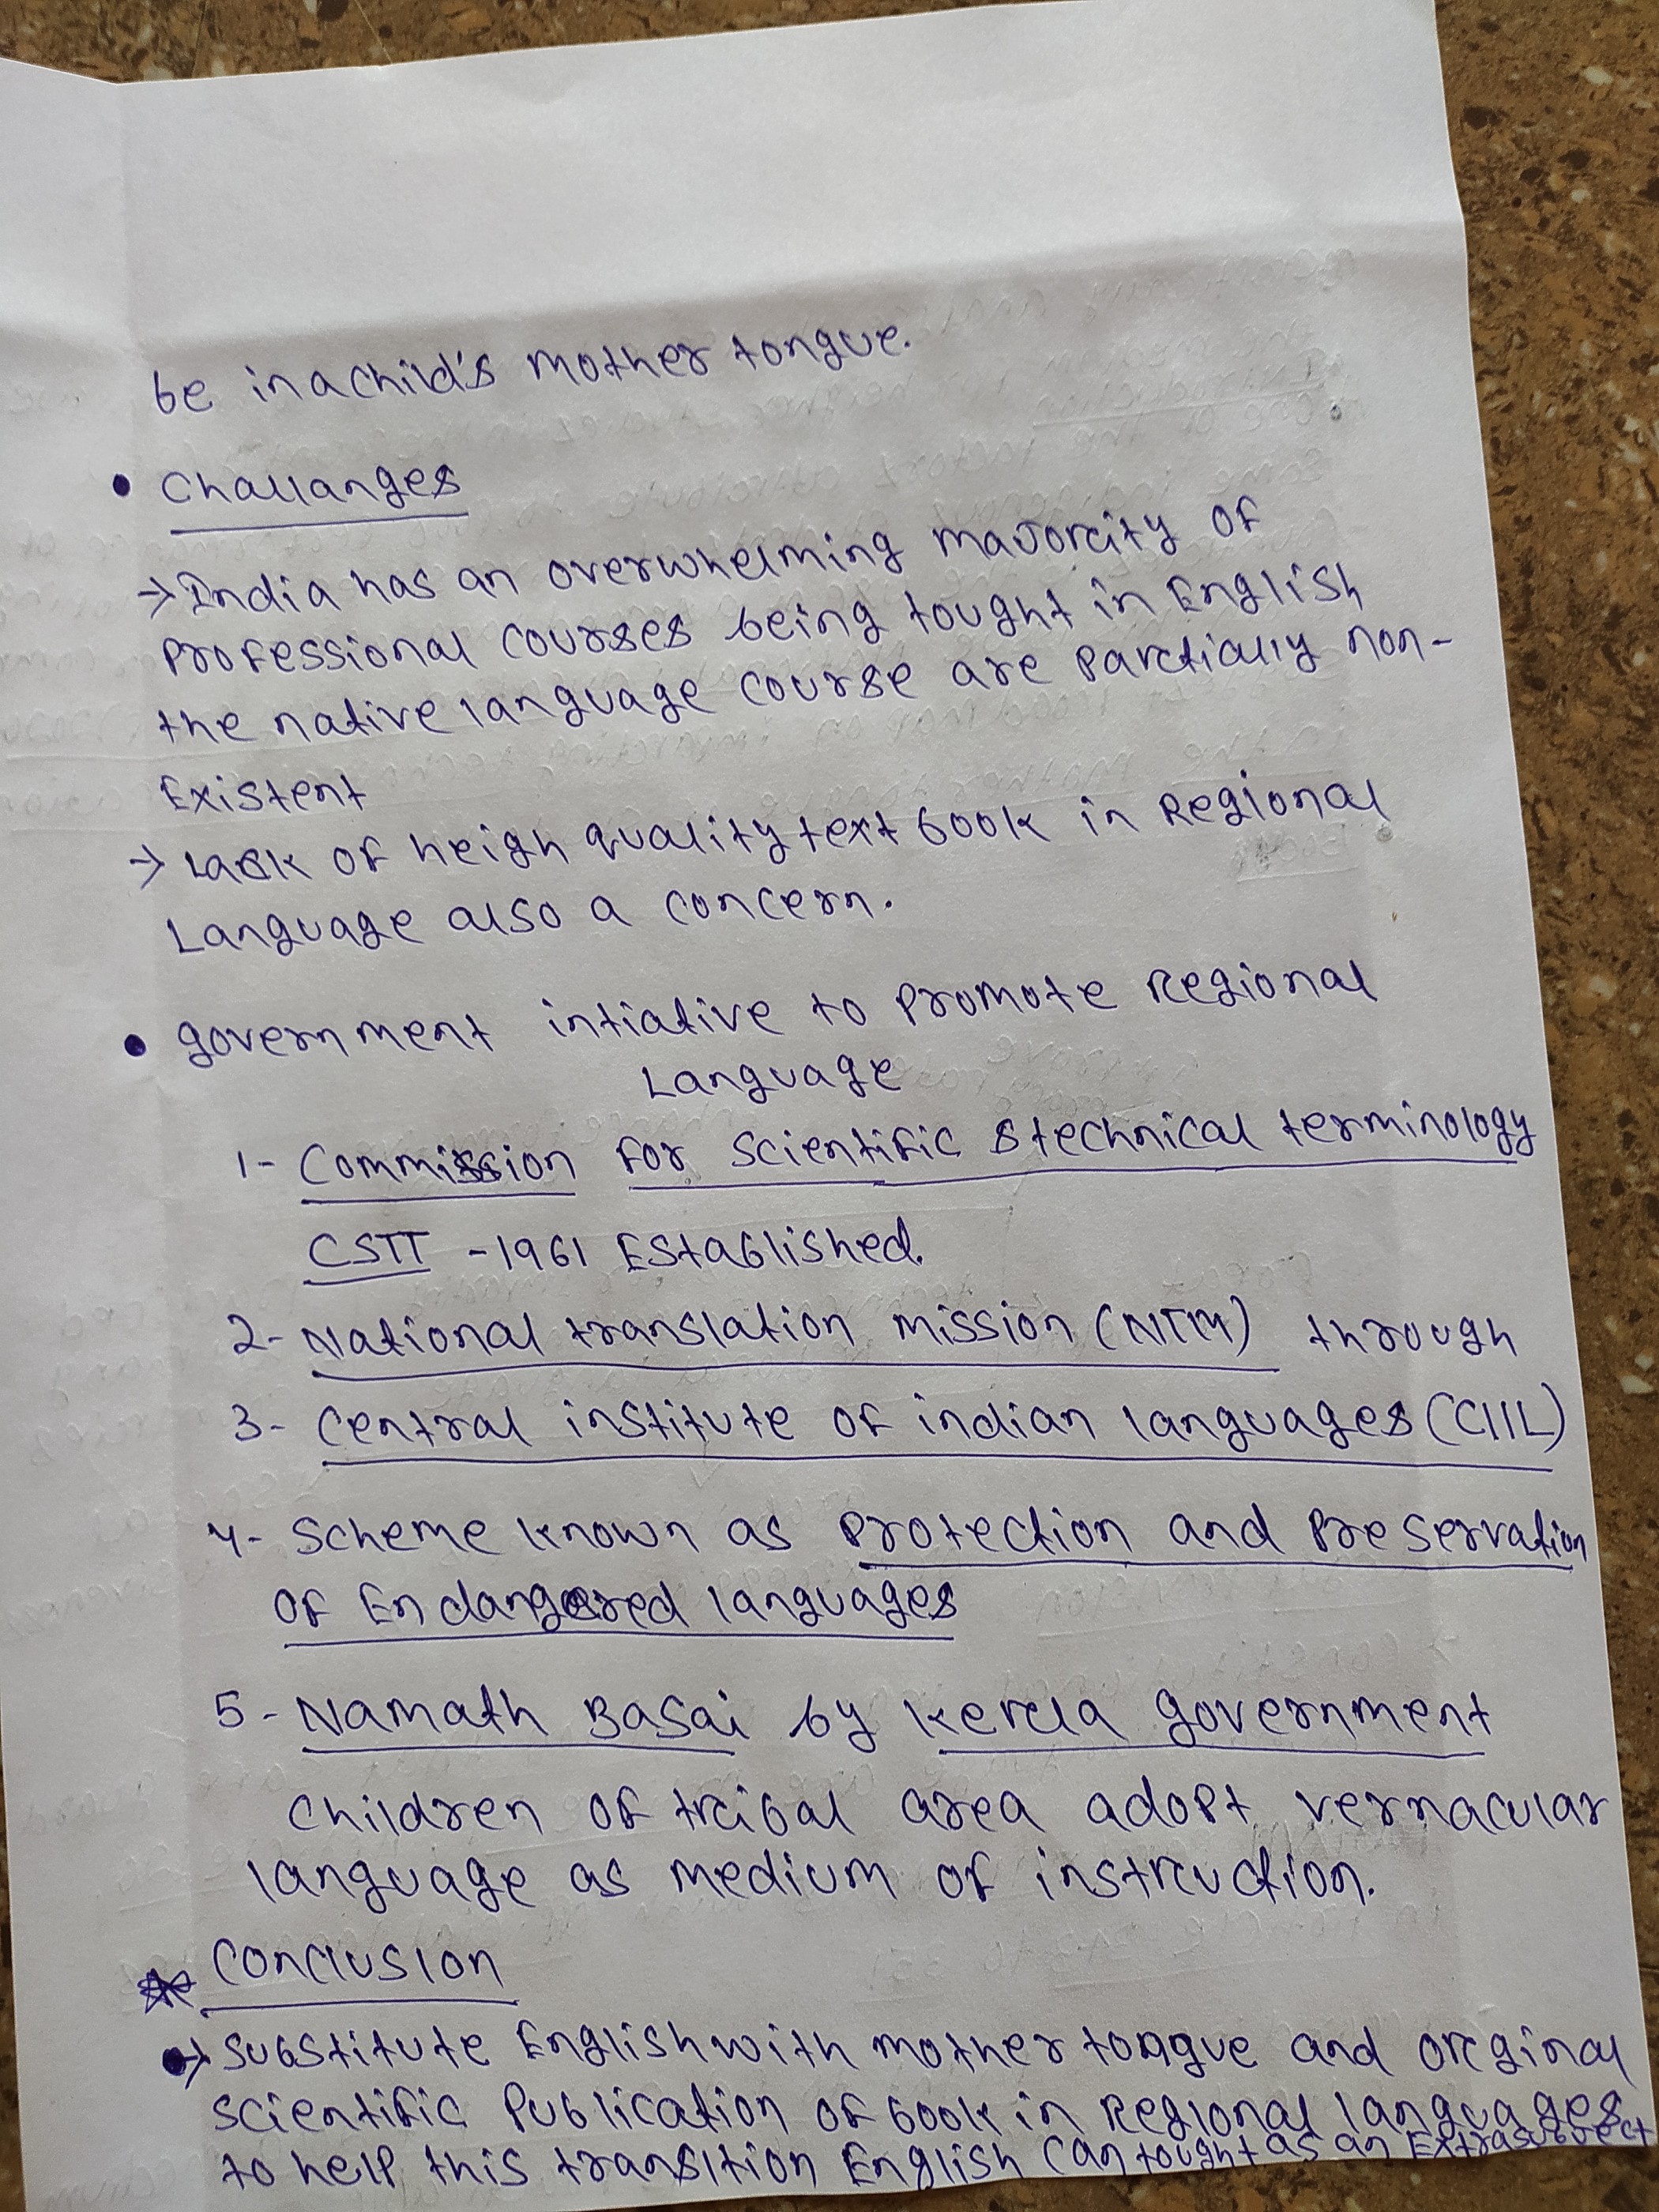 be in a child's mother tongue.
• Challanges
→ India has an overwhelming majority of
professional courses being tought in English
the native language course are partially non-
Existent
→ Lack of heigh quality text book in Regional
Language also a concern.
• government intiative to promote Regional
Language
1- Commission for scientific & technical terminology
CSTT - 1961 Established.
2- National translation mission (NTM) through
3- Central institute of indian languages (CIIL)
4- Scheme known as protection and preservation
of Endangered languages
5- Namath Basai by kerela government
Children of tribal area adopt vernacular
language as medium of instruction.
Conclusion
→ Substitute English with mother tongue and original
scientific publication of book in Regional languages
to help this transition English can tought as an Extrasubject